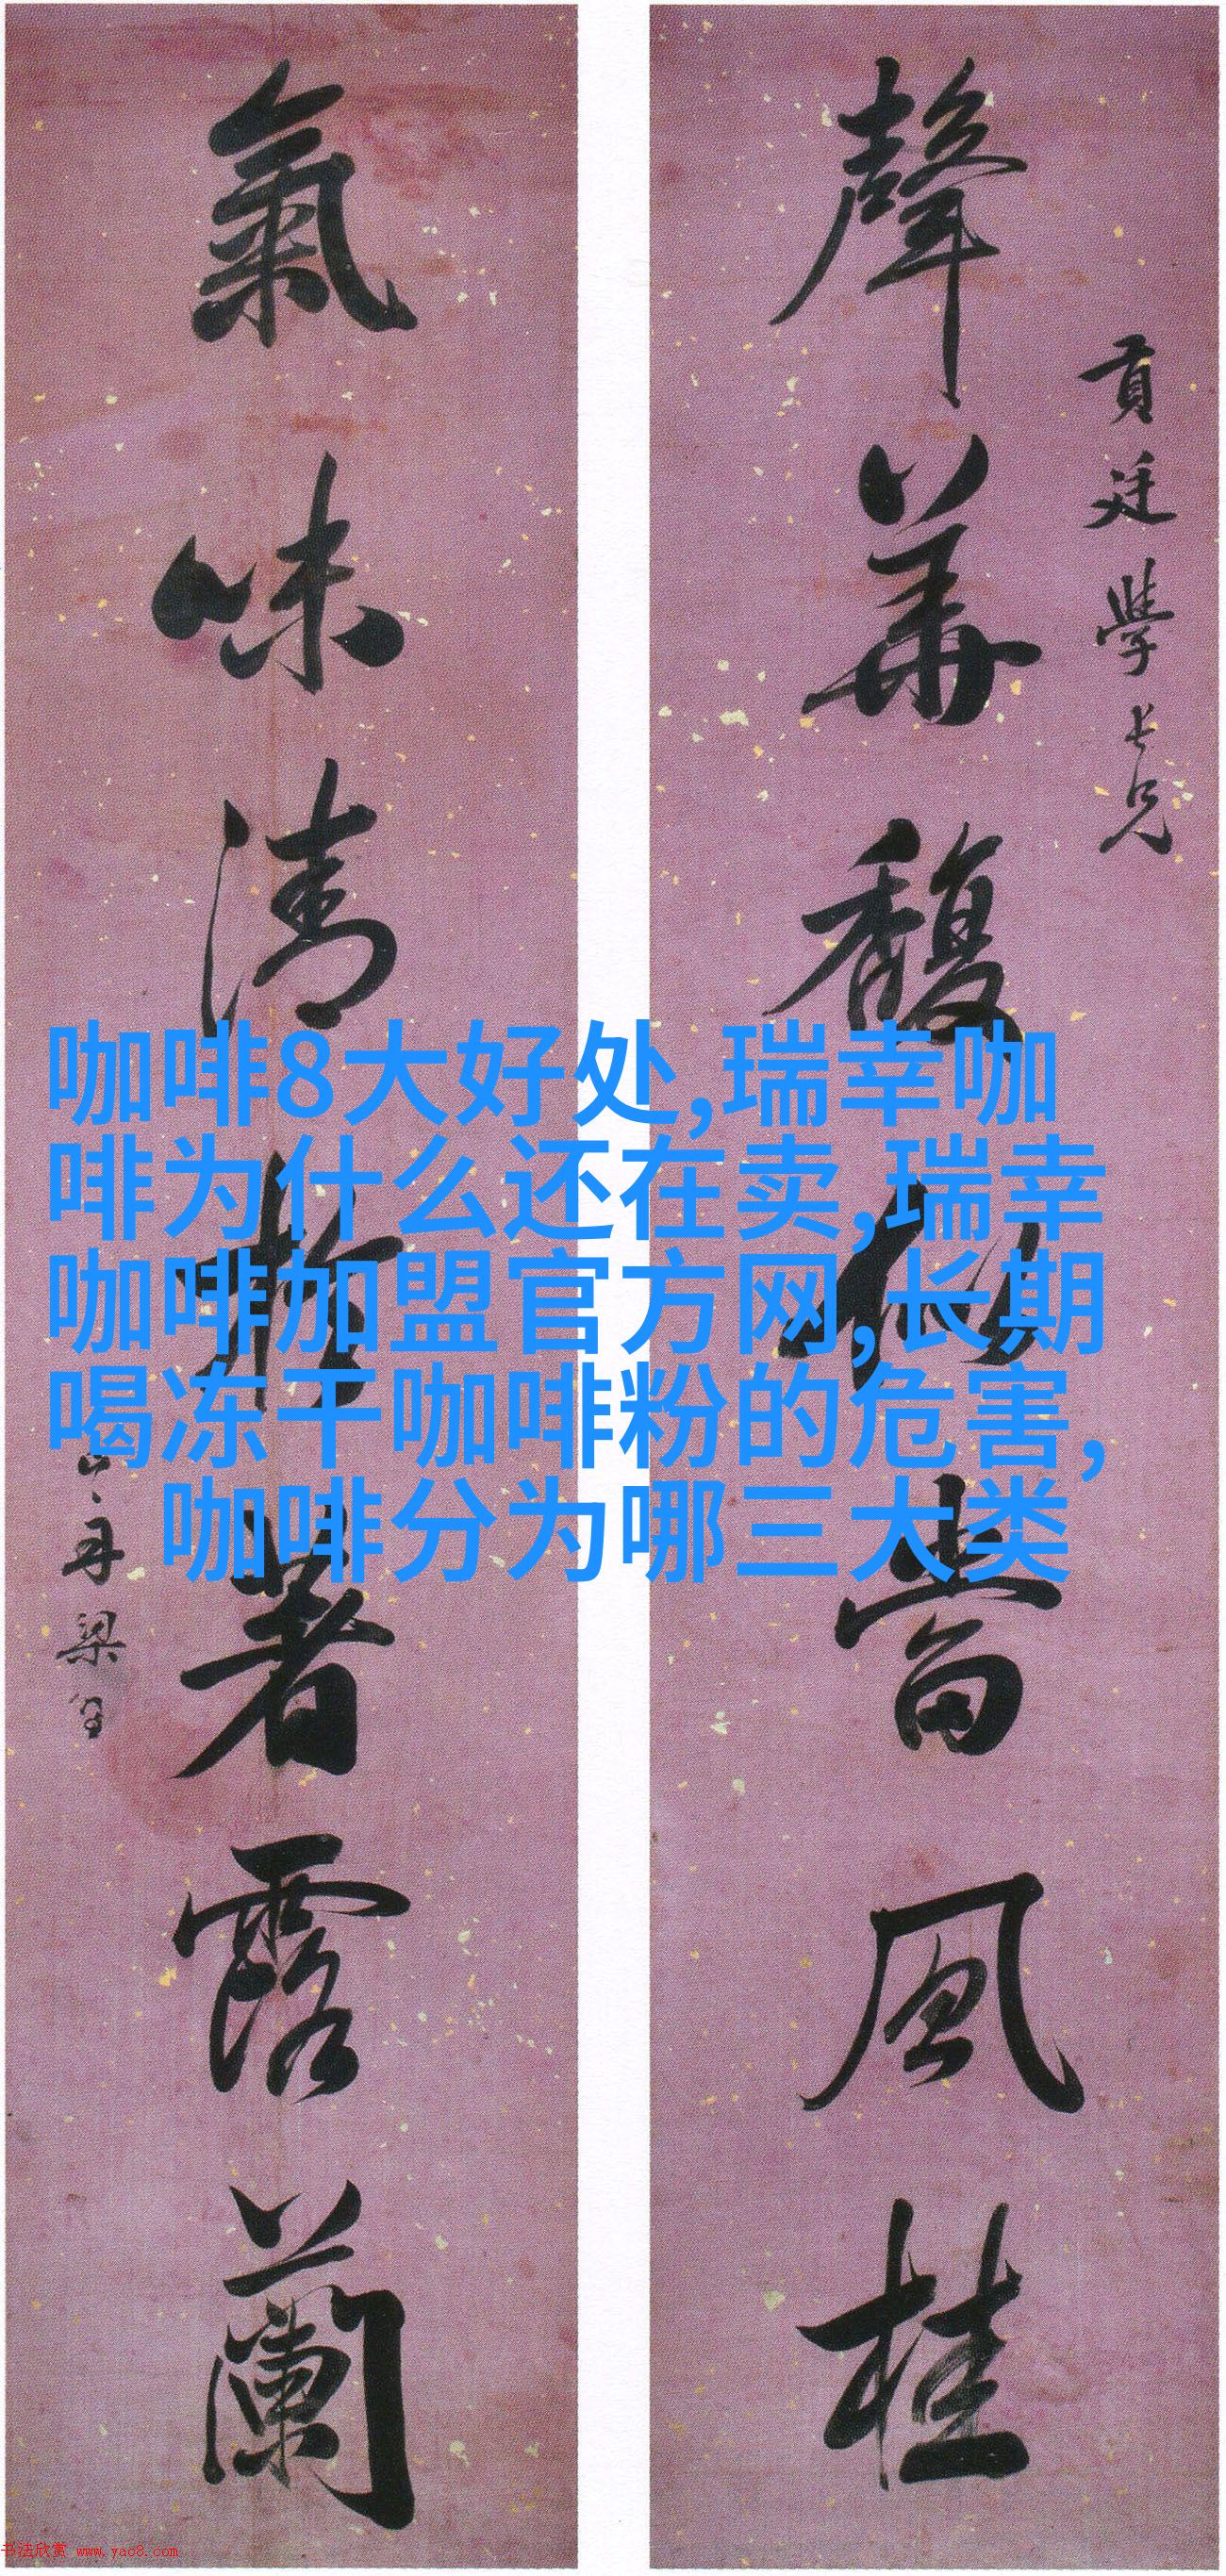 貢廷學長兄
聲華馥當風桂
氣味清著露蘭
山舟梁
咖啡8大好处,瑞幸咖
啡为什么还在卖,瑞幸
咖啡加盟官方网,长期
喝冻干咖啡粉的危害,
咖啡分为哪三大类
书法欣赏 www.yac8.com